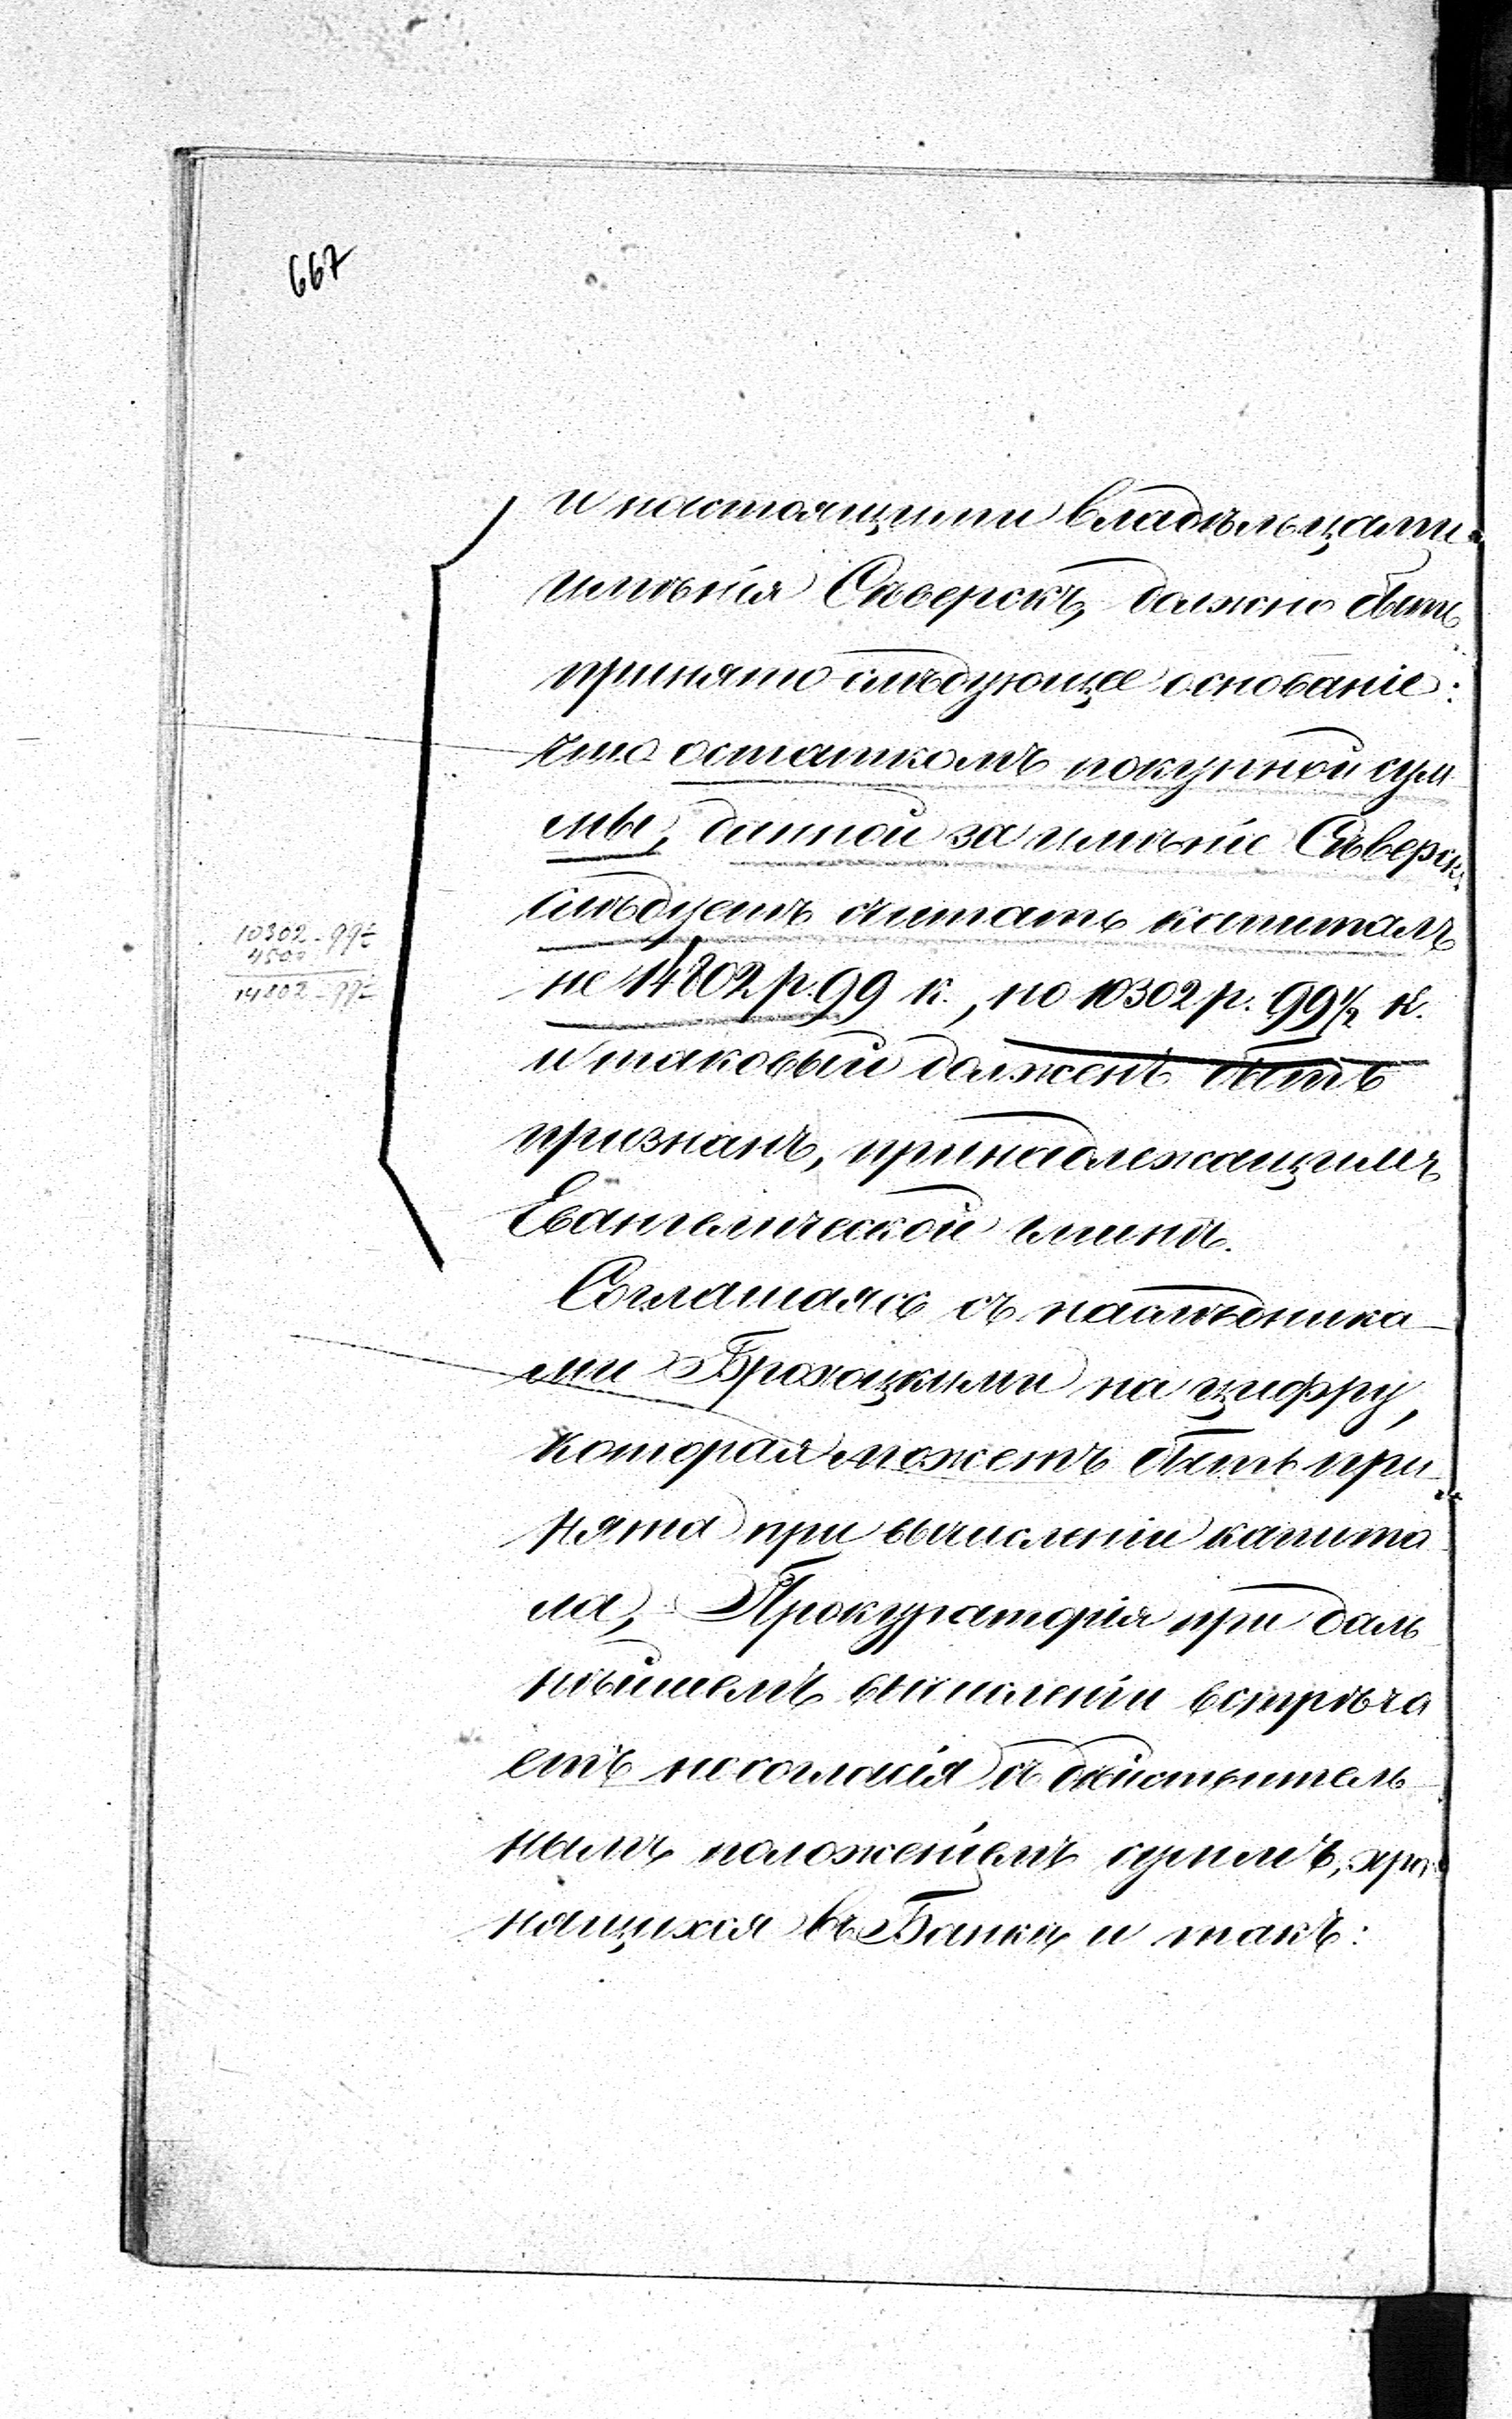 667
и настоящими владѣльцами
имѣнія Сѣверскъ, должно быть
принято слѣдующее основаніе:
что остаткомъ покупной сум
мы, данной за имѣніе Сѣверскъ,
слѣдуетъ считать капиталъ
10302-99½
4500
14802-99½
не 14802 р. 99 к., но 10302 р. 99 ½ к.
и таковый долженъ быть
признанъ, принадлежащимъ
Евангелической гминѣ.
Соглашаясь съ наслѣдника-
ми Брохоцкими на цифру,
которая можетъ быть при
нята при вычисленіи капита
ла, Прокураторія при даль
нѣйшемъ вычисленіи встрѣча
етъ несогласія съ дѣйствитель
нымъ положеніемъ суммъ, хра
нящихся въ Банкѣ, и такъ: